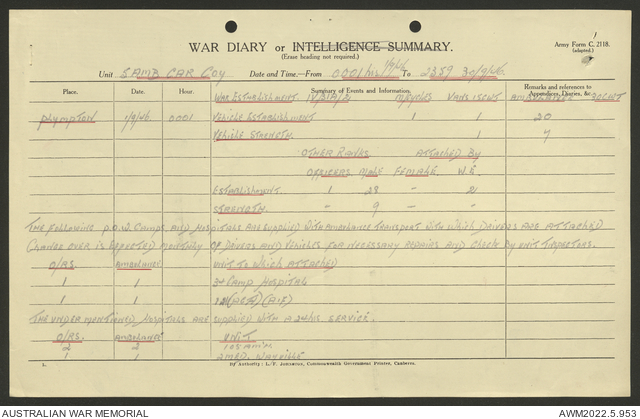 1
WAR DIARY or INTELLIGENCE SUMMARY.
(Erase heading not required).
Army Form C. 2118.
(adapted.)
Unit Date and Time—From 0001 hrs 1/9/46 To 2359 30/9/46.
Place. Date. Hour. Summary of Events and Information. Remarks and references to Appendices, Diaries, &c.
WAR ESTABLISHMENT M/CYCLES VANS 15CWT AMBULANCE
PLYMPTON 1/9/46 0001 VEHICLE ESTABLISHMENT 1 1 20
VEHICLE STRENGTH 1 7
OTHER RANKS ATTACHED BY
OFFICERS MALE FEMALE W.E.
ESTABLISHMENT 1 28 - 2
STRENGTH - 9 - -
THE FOLLOWING P.O.W. CAMPS AND HOSPITALS ARE SUPPLIED WITH AMBULANCE TRANSPORT WITH WHICH DRIVERS ARE ATTACHED
CHANGE OVER IS EFFECTED MONTHLY OF DRIVERS AND VEHICLES FOR NECESSARY REPAIRS AND CHECK BY UNIT INSPECTORS.
O/RS. AMBULANCE UNIT TO WHICH ATTACHED
1 1 CAMP HOSPITAL
1 1 (AIF)
THE UNDER MENTIONED HOSPITALS ARE SUPPLIED WITH A 24 HRS SERVICE.
O/RS. AMBULANCE UNIT
2 2 105
1 1 WAYVILLE
1. By Authority: L. F. Johnston, Commonwealth Government Printer, Canberra.
AUSTRALIAN WAR MEMORIAL AWM2022.5.953